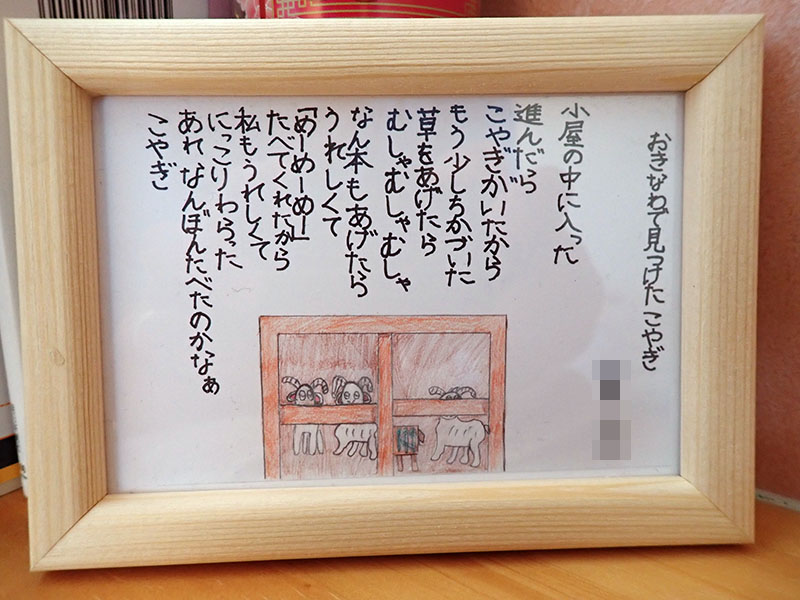 おきなわで見つけたこやぎ
小屋の中に入った
進んだら
こやぎがいたから
もう少しちかづいた
草をあげたら
むしゃむしゃむしゃ
なん本もあげたら
うれしくて
「めーめーめー」
たべてくれたから
私もうれしくて
にっこりわらった
あれ、なんぼんたべたのかなぁ
こやぎ